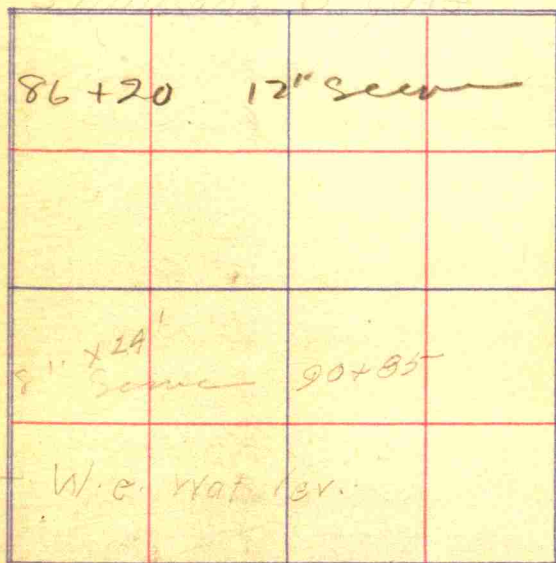 86+20 12" Sewer
8" x 24'
Sewer 90+85
W.e. Wat lev.